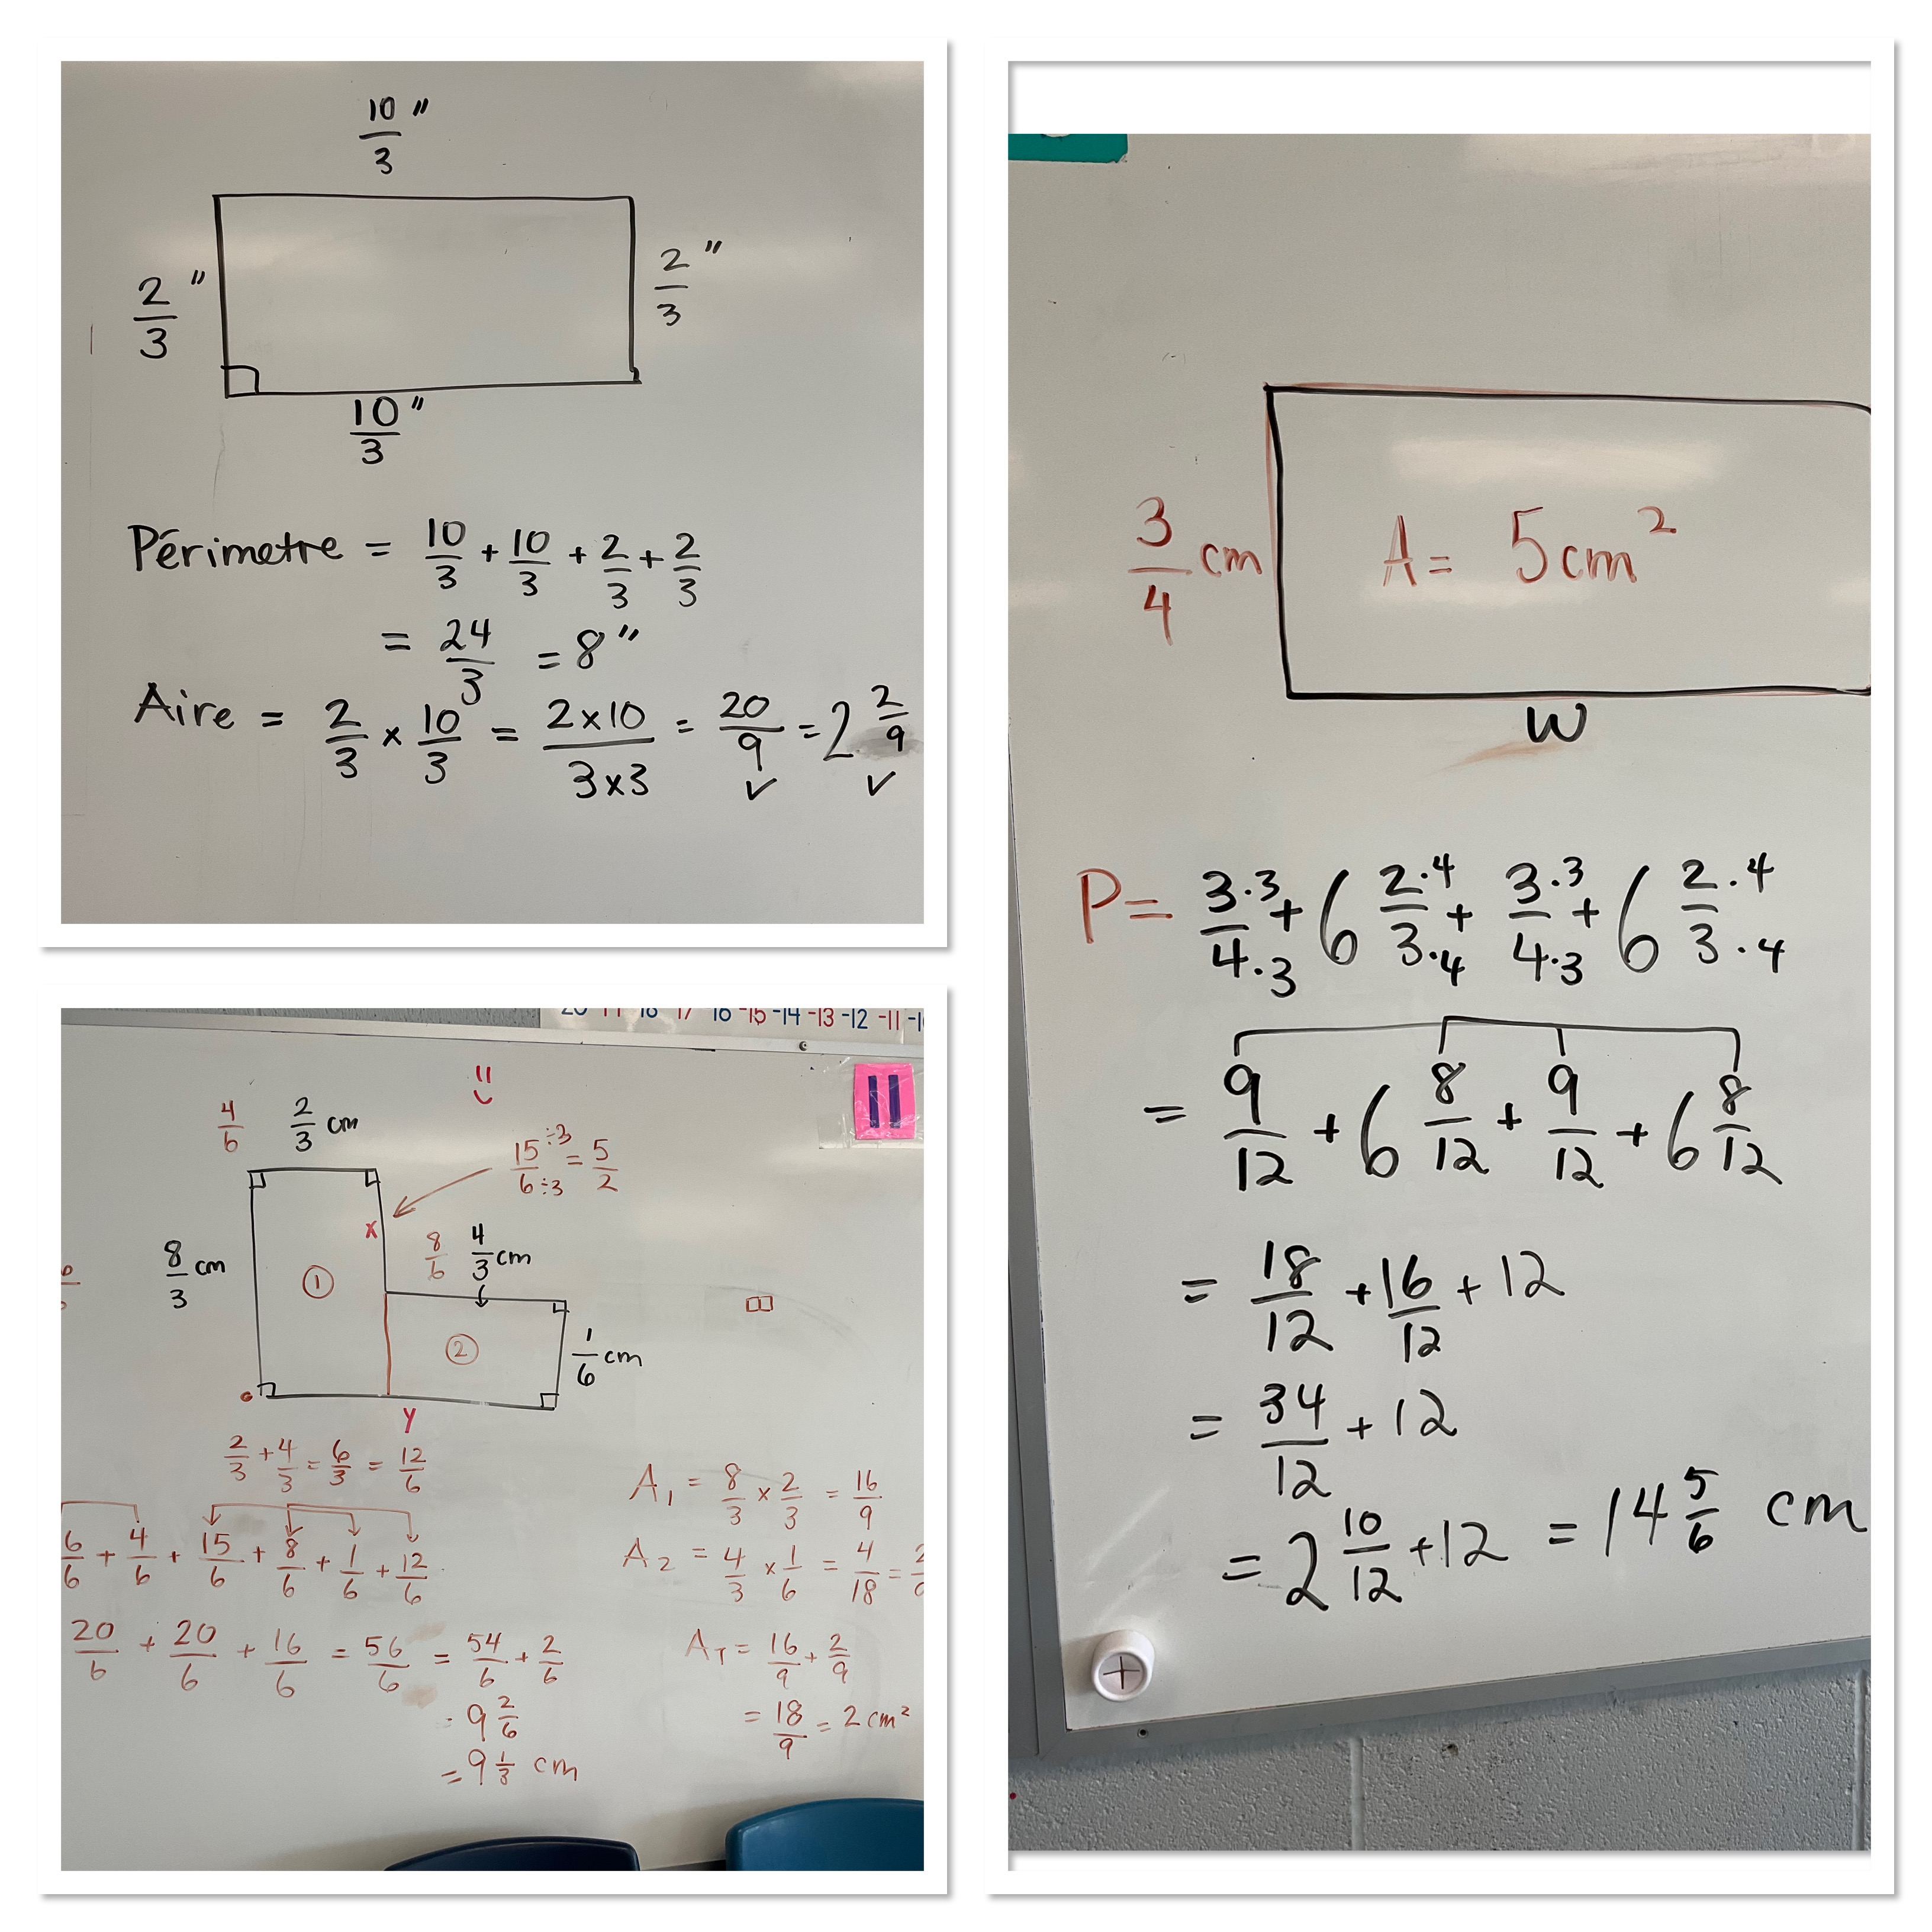 10/3 "
2/3 "
2/3 "
10/3 "
Périmetre = 10/3 + 10/3 + 2/3 + 2/3
= 24/3 = 8"
Aire = 2/3 × 10/3 = 2×10/3×3 = 20/9 = 2 2/9
✓ ✓
-15 -14 -13 -12 -11
11
4/6 2/3 cm
15÷3/6÷3 = 5/2
x
8/6 4/3 cm
8/3 cm
①
②
1/6 cm
y
2/3 + 4/3 = 6/3 = 12/6
6/6 + 4/6 + 15/6 + 8/6 + 1/6 + 12/6
20/6 + 20/6 + 16/6 = 56/6 = 54/6 + 2/6
= 9 2/6
= 9 1/3 cm
A₁ = 8/3 × 2/3 = 16/9
A₂ = 4/3 × 1/6 = 4/18 =
A_T = 16/9 + 2/9
= 18/9 = 2 cm²
3/4 cm
A = 5cm²
W
P = 3·3/4·3 + 6 2·4/3·4 + 3·3/4·3 + 6 2·4/3·4
= 9/12 + 6 8/12 + 9/12 + 6 8/12
= 18/12 + 16/12 + 12
= 34/12 + 12
= 2 10/12 + 12 = 14 5/6 cm